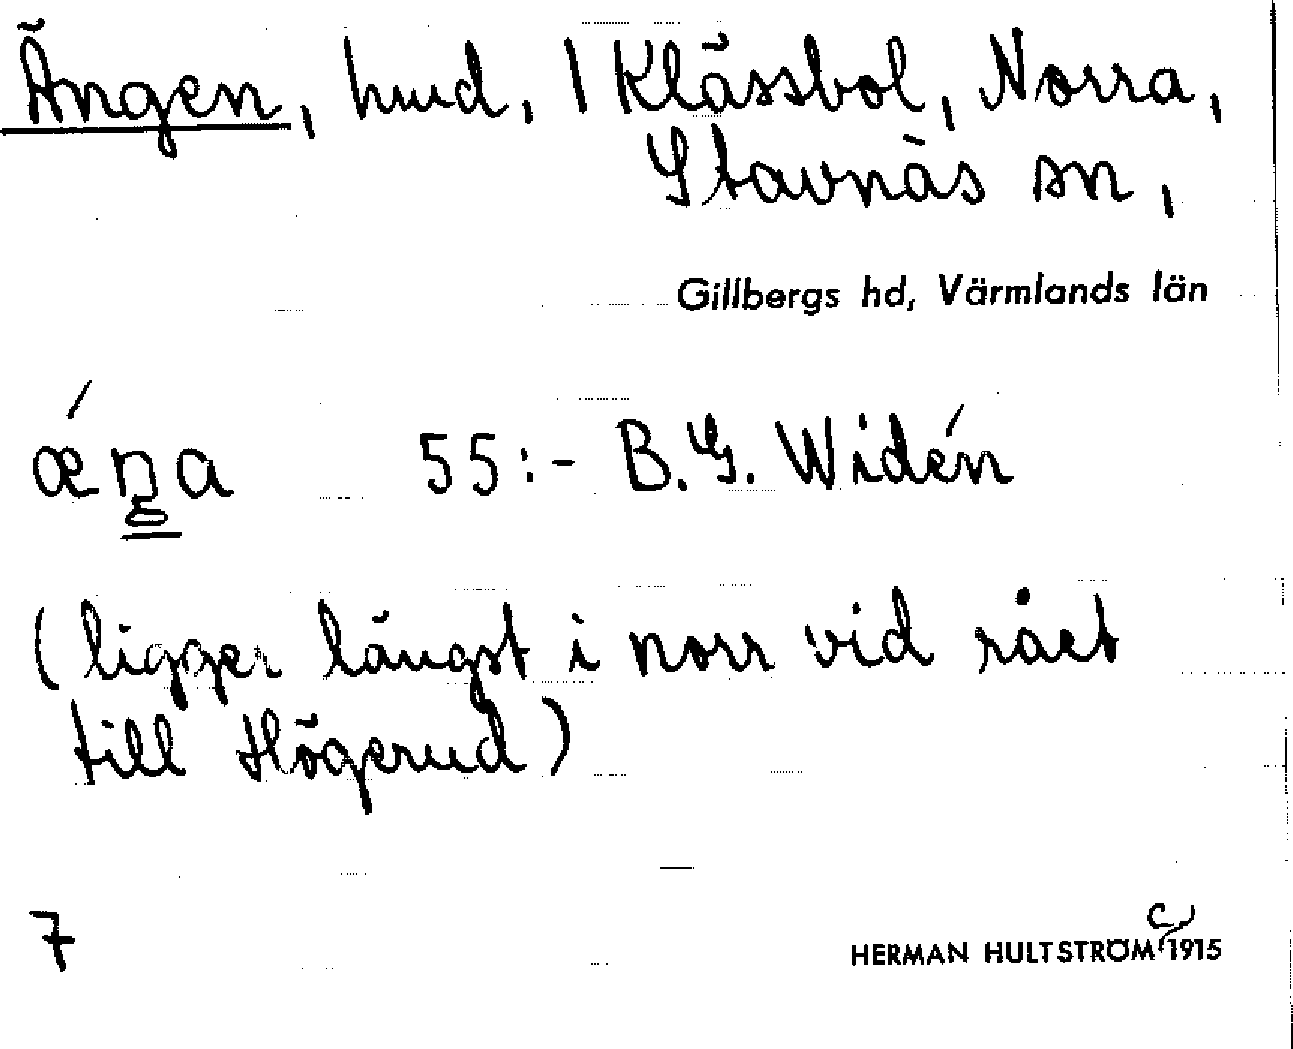 Ängen, hmd, 1 Klässbol, Norra,
Stavnäs sn,
Gillbergs hd, Värmlands län
ǽŋa 55:- B.G. Widén
(ligger längst i norr vid rået
till Högerud)
7
HERMAN HULTSTRÖM C 1915